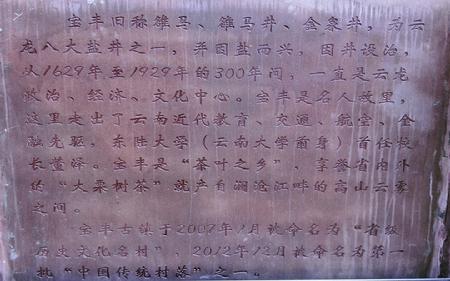 宝丰旧称雒马、雒马井、金泉井，为云
龙八大盐井之一，并因盐而兴，因井设治，
从1629年至1929年的300年间，一直是云龙
政治、经济、文化中心。宝丰是名人故里，
这里走出了云南近代教育、交通、航空、金
融先驱，东陆大学（云南大学前身）首任校
长董泽。宝丰是“茶叶之乡”，享誉省内外
的“大栗树茶”就产自澜沧江畔的高山云雾
之间。
宝丰古镇于2007年1月被命名为“省级
历史文化名村”，2012年12月被命名为第一
批“中国传统村落”之一。